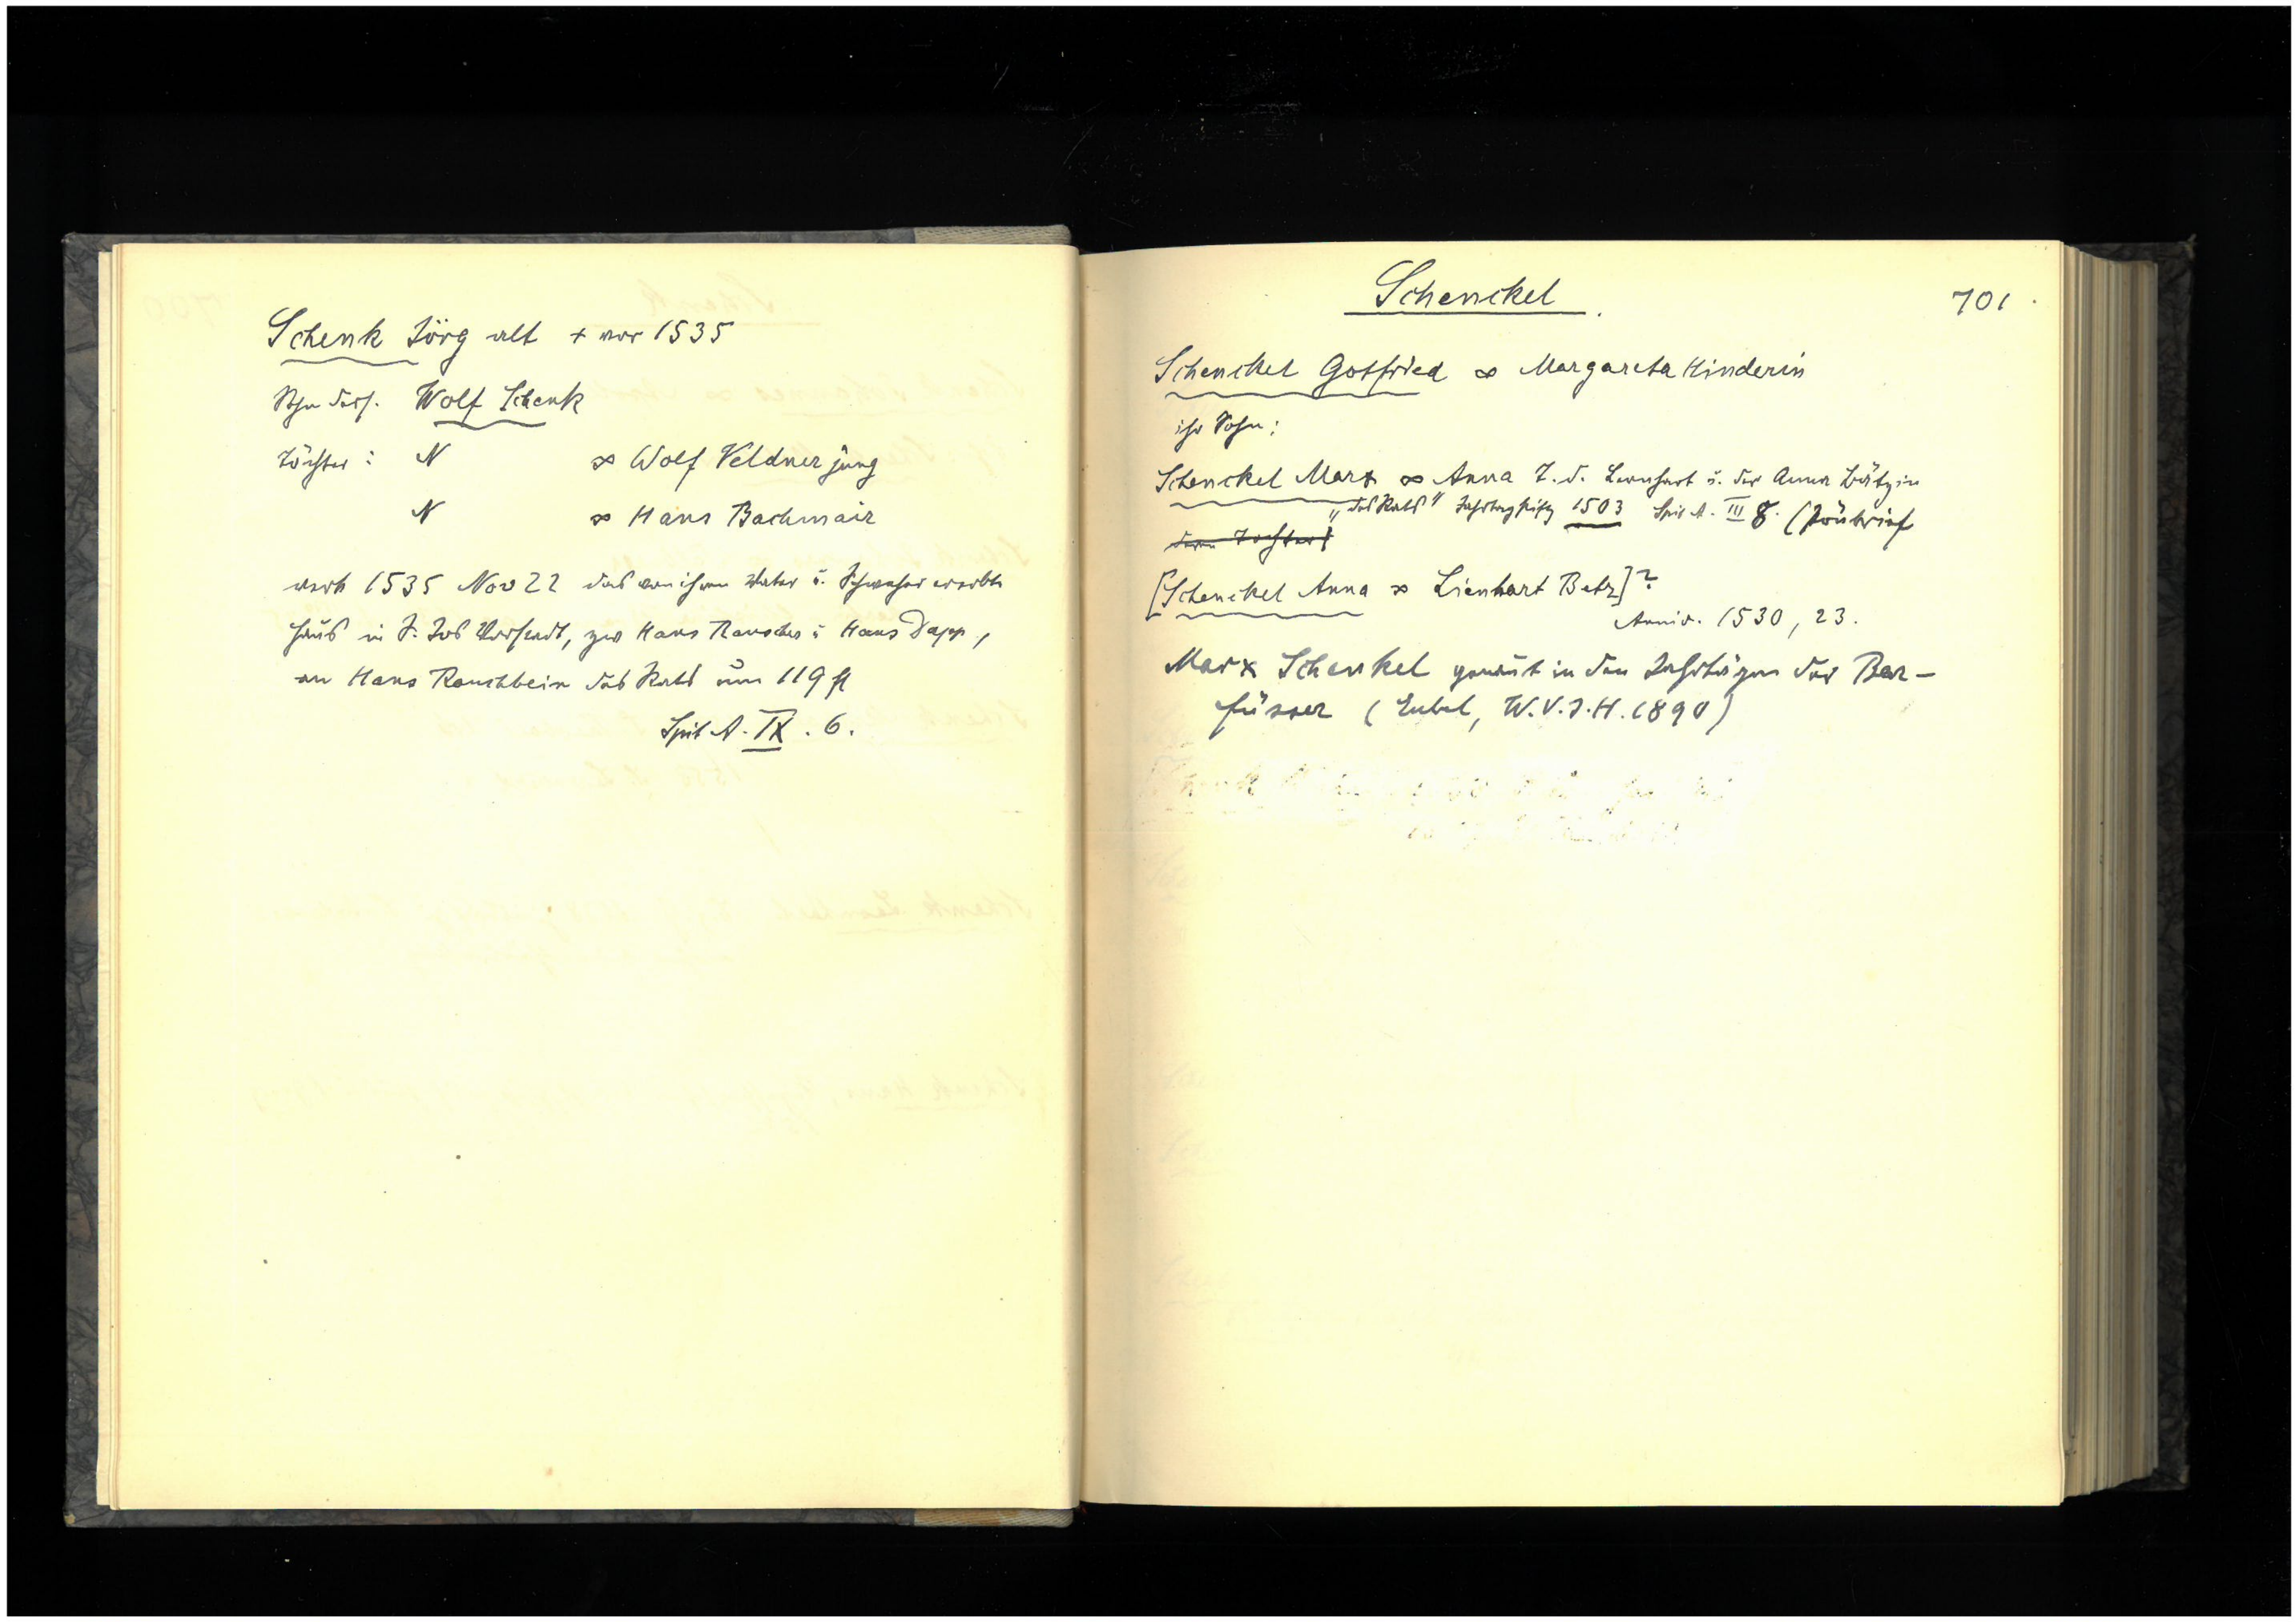 Schenk Jörg alt + vor 1535
Sohn dess. Wolf Schenk
Töchter: N ∞ Wolf Veldner jung
N ∞ Hans Bachmair
verk 1535 Nov 22 das von ihrem Vater u. Schweher ererbte
Haus in S. Jos Vorstadt, zw Hans Rauscher u Hans Dapp,
an Hans Rauchbein des Rats um 119 fl
Spit A. IX . 6.
Schenckel.
701
Schenckel Gotfried ∞ Margareta Kinderin
ihr Sohn:
Schenckel Marx ∞ Anna T. d. Lernhart u. der Anna Bätzin
„des Rats“ Jahrtagstiftg 1503 Spit A. III 8.
deren Tochter:
[Schenckel Anna ∞ Lienhart Betz]?
Anniv. 1530, 23.
Marx Schenkel genannt in den Jahrtägen der Bar-
füsser (Eubel, W.V.J.H. 1890)